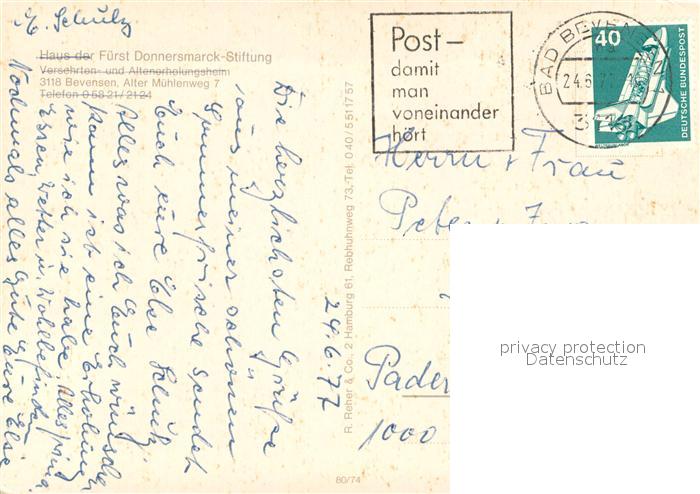 Abs. Schulz
Haus der Fürst Donnersmarck-Stiftung
Versehrten- und Altenerholungsheim
3118 Bevensen, Alter Mühlenweg 7
Telefon 0 58 21 / 21 24
Post –
damit
man
voneinander
hört
BAD BEVENSEN
24.6.77
40
DEUTSCHE BUNDESPOST
Die herzlichsten Grüße
aus meiner schönen
Sommerfrische sendet
Euch eure Else Schulz
Alles was ich Euch wünsche
kann ist eine Erholung
wie ich sie habe. Alles prima
Essen, Wetter u. Wohlbefinden
Nochmals alles Gute Eure Else
24.6.77
R. Reher & Co., 2 Hamburg 61, Rebhuhnweg 73, Tel. 040/5511757
80/74
Herrn + Frau
Peter
Pader
1000
privacy protection
Datenschutz